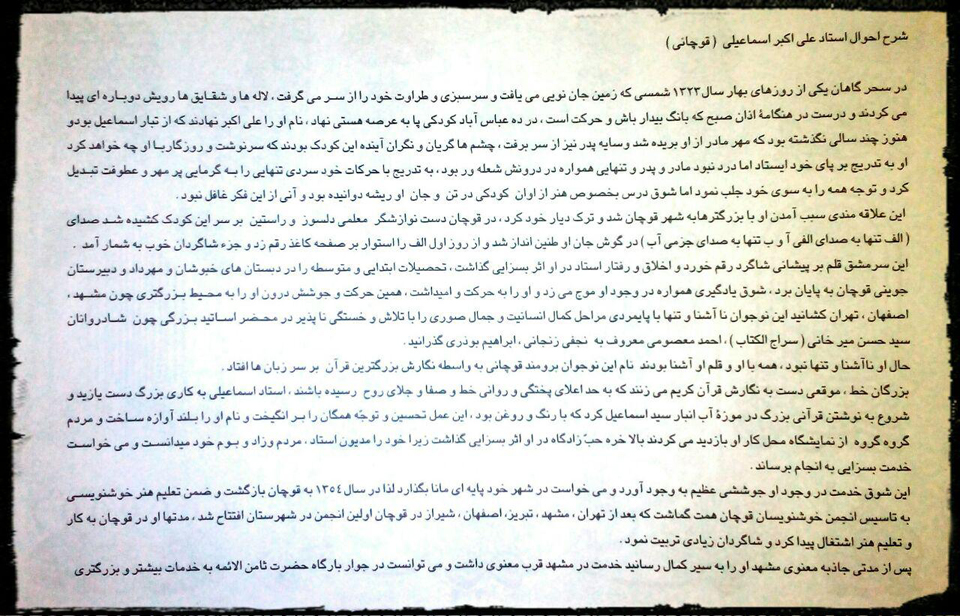 شرح احوال استاد علی اکبر اسماعیلی ( قوچانی )
در سحر گاهان یکی از روزهای بهار سال ۱۳۲۳ شمسی که زمین جان نویی می یافت و سرسبزی و طراوت خود را از سر می گرفت ، لاله ها و شقایق ها رویش دوباره ای پیدا
می کردند و درست در هنگامهٔ اذان صبح که بانگ بیدار باش و حرکت است ، در ده عباس آباد کودکی پا به عرصه هستی نهاد ، نام او را علی اکبر نهادند که از تبار اسماعیل بودو
هنوز چند سالی نگذشته بود که مهر مادر از او بریده شد وسایه پدر نیز از سر برفت ، چشم ها گریان و نگران آینده این کودک بودند که سرنوشت و روزگاربا او چه خواهد کرد
او به تدریج بر پای خود ایستاد اما درد نبود مادر و پدر و تنهایی همواره در درونش شعله ور بود ، به تدریج با حرکات خود سردی تنهایی را به گرمایی پر مهر و عطوفت تبدیل
کرد و توجه همه را به سوی خود جلب نمود اما شوق درس بخصوص هنر از اوان کودکی در تن و جان او ریشه دوانیده بود و آنی از این فکر غافل نبود .
این علاقه مندی سبب آمدن او با بزرگترهابه شهر قوچان شد و ترک دیار خود کرد ، در قوچان دست نوازشگر معلمی دلسوز و راستین بر سر این کودک کشیده شد صدای
( الف تنها به صدای الفی آ و ب تنها به صدای جزمی آب ) در گوش جان او طنین انداز شد و از روز اول الف را استوار بر صفحه کاغذ رقم زد و جزء شاگردان خوب به شمار آمد .
این سرمشق قلم بر پیشانی شاگرد رقم خورد و اخلاق و رفتار استاد در او اثر بسزایی گذاشت ، تحصیلات ابتدایی و متوسطه را در دبستان های خبوشان و مهرداد و دبیرستان
جوینی قوچان به پایان برد ، شوق یادگیری همواره در وجود او موج می زد و او را به حرکت و امیداشت ، همین حرکت و جوشش درون او را به محیط بزرگتری چون مشهد ،
اصفهان ، تهران کشانید این نوجوان نا آشنا و تنها با پایمردی مراحل کمال انسانیت و جمال صوری را با تلاش و خستگی نا پذیر در محضر اساتید بزرگی چون شادروانان
سید حسن میر خانی ( سراج الکتاب ) ، احمد معصومی معروف به نجفی زنجانی ، ابراهیم بوذری گذرانید .
حال او ناآشنا و تنها نبود ، همه با او و قلم او آشنا بودند نام این نوجوان برومند قوچانی به واسطه نگارش بزرگترین قرآن بر سر زبان ها افتاد .
بزرگان خط ، موقعی دست به نگارش قرآن کریم می زنند که به حد اعلای پختگی و روانی خط و صفا و جلای روح رسیده باشند ، استاد اسماعیلی به کاری بزرگ دست یازید و
شروع به نوشتن قرآنی بزرگ در موزهٔ آب انبار سید اسماعیل کرد که با رنگ و روغن بود ، این عمل تحسین و توجّه همگان را بر انگیخت و نام او را بلند آوازه ساخت و مردم
گروه گروه از نمایشگاه محل کار او بازدید می کردند بالا خره حبّ زادگاه در او اثر بسزایی گذاشت زیرا خود را مدیون استاد ، مردم وزاد و بوم خود میدانست و می خواست
خدمت بسزایی به انجام برساند .
این شوق خدمت در وجود او جوششی عظیم به وجود آورد و می خواست در شهر خود پایه ای مانا بگذارد لذا در سال ۱۳۵۴ به قوچان بازگشت و ضمن تعلیم هنر خوشنویسی
به تاسیس انجمن خوشنویسان قوچان همت گماشت که بعد از تهران ، مشهد ، تبریز ، اصفهان ، شیراز در قوچان اولین انجمن در شهرستان افتتاح شد ، مدتها او در قوچان به کار
و تعلیم هنر اشتغال پیدا کرد و شاگردان زیادی تربیت نمود .
پس از مدتی جاذبه معنوی مشهد او را به سیر کمال رسانید خدمت در مشهد قرب معنوی داشت و می توانست در جوار بارگاه حضرت ثامن الائمه به خدمات بیشتر و بزرگتری